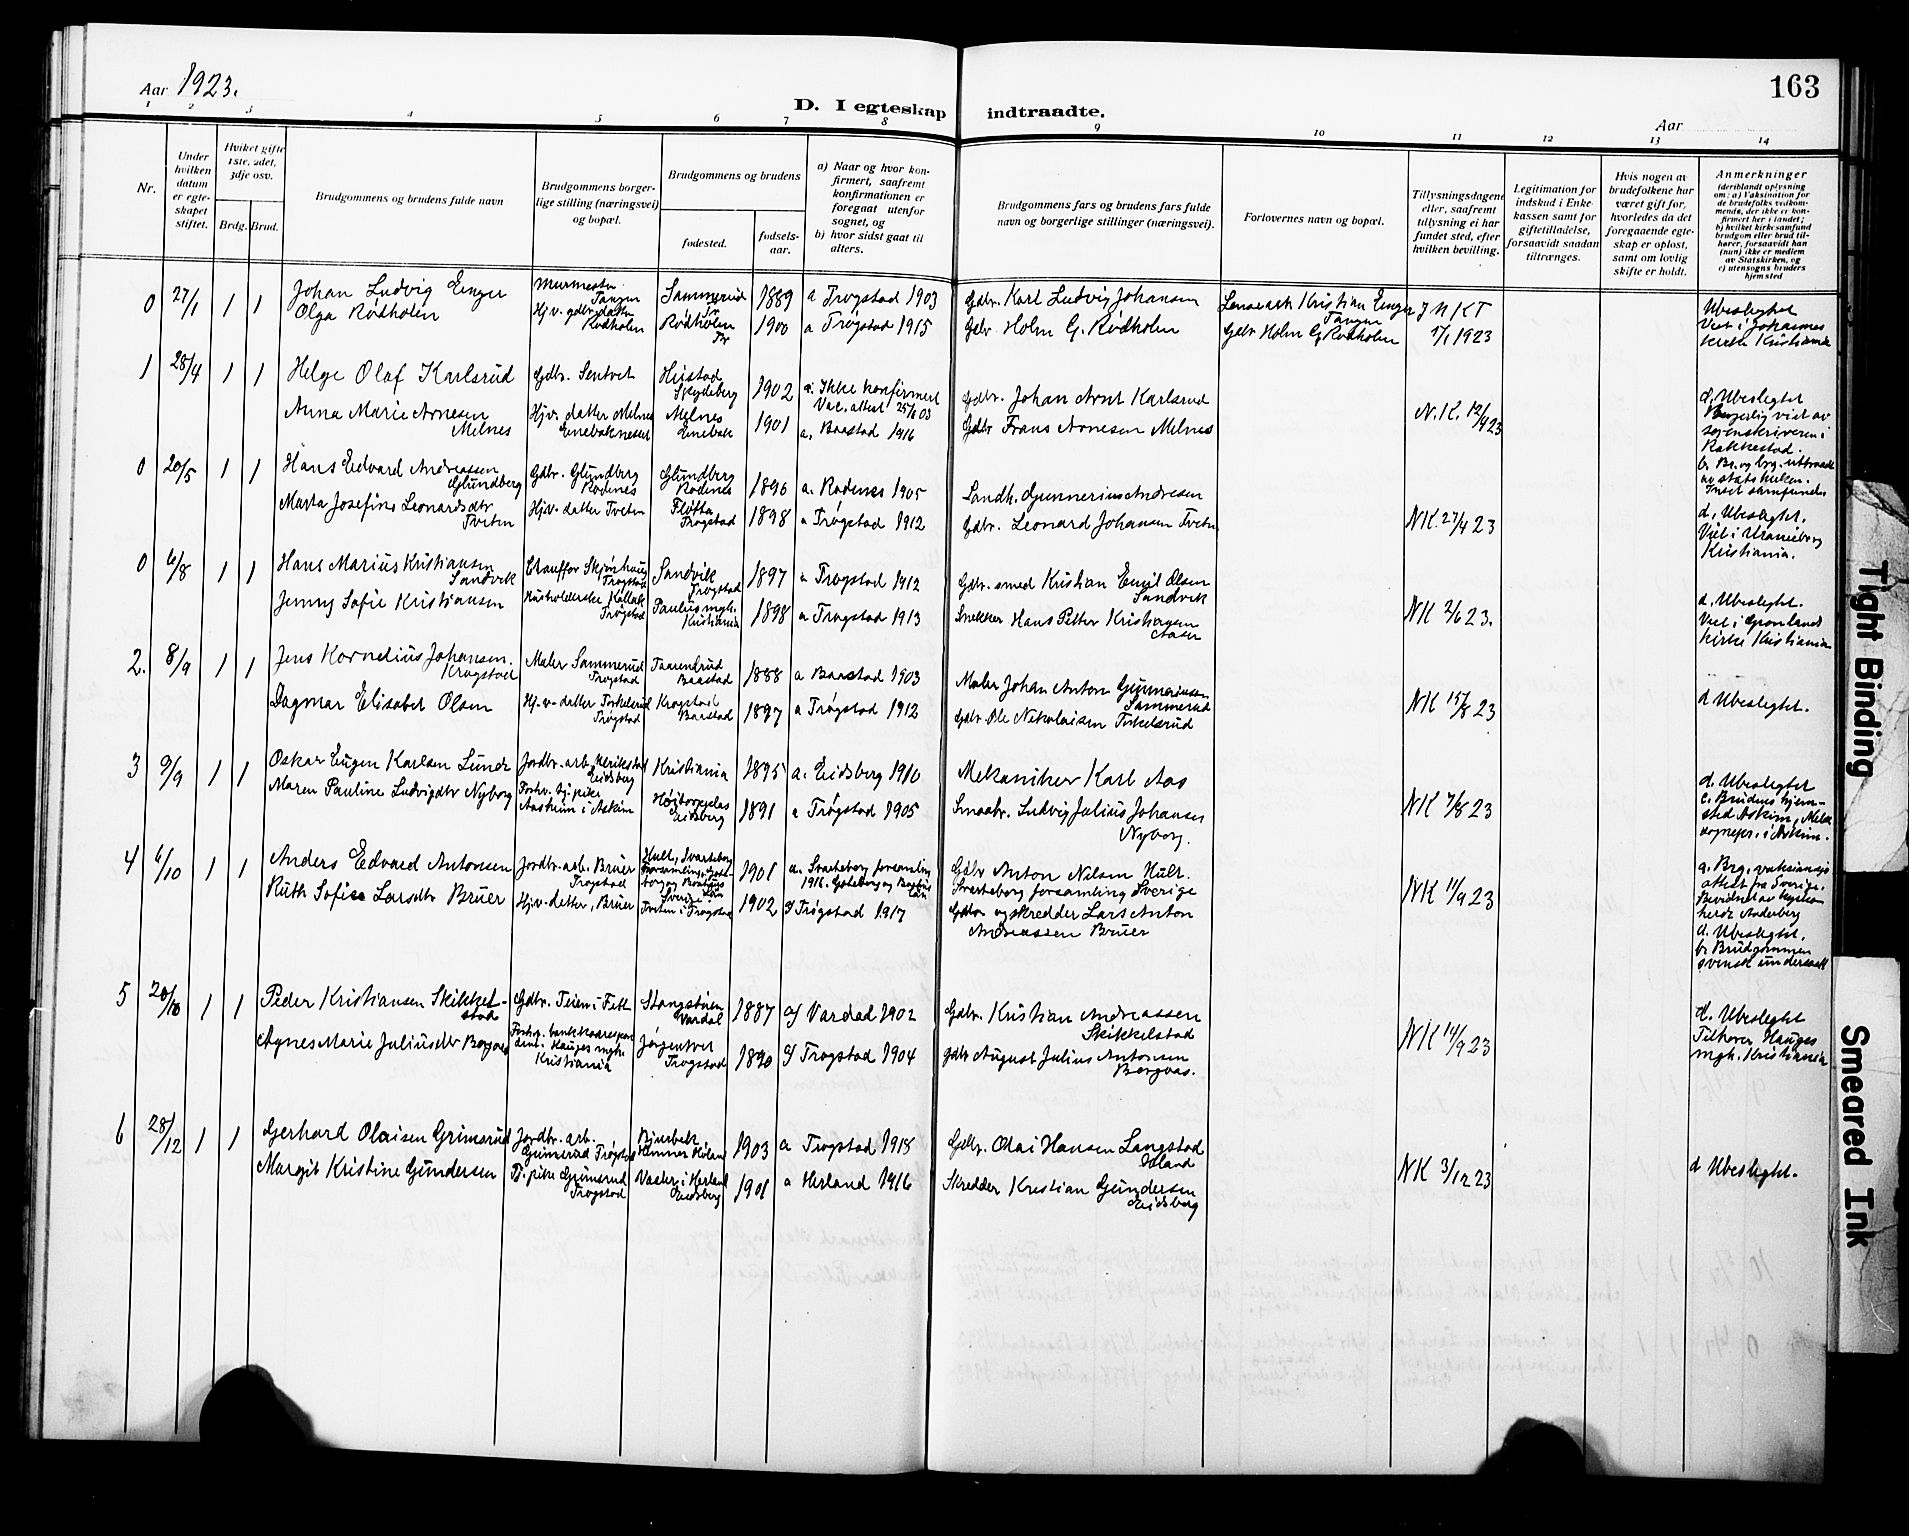 Aar 1923.
D. I egteskap indtraadte.
163
Aar
1 2 3 4 5 6 7 8 9 10 11 12 13 14
Nr.
Under hvilken datum er egteskapet stiftet.
Hvilket gifte 1ste, 2det, 3dje osv.
Brdg. Brud.
Brudgommens og brudens fulde navn
Brudgommens borgerlige stilling (næringsvei) og bopæl.
Brudgommens og brudens
fødested.
fødselsaar.
a) Naar og hvor konfirmert, saafremt konfirmationen er foregaat utenfor sognet, og
b) hvor sidst gaat til alters.
Brudgommens fars og brudens fars fulde navn og borgerlige stillinger (næringsvei).
Forlovernes navn og bopæl.
Tillysningsdagene eller, saafremt tillysning ei har fundet sted, efter hvilken bevilling.
Legitimation for indskud i Enkekassen samt for giftetilladelse, forsaavidt saadan tiltrænges.
Hvis nogen av brudefolkene har været gift før, hvorledes da det foregaaende egteskap er opløst, samt om lovlig skifte er holdt.
Anmerkninger
(deriblandt oplysning om: a) Vaksination for de brudefolks vedkommende, der ikke er konfirmert her i landet; b) hvilket kirkesamfund brudgom eller brud tilhører, forsaavidt han (hun) ikke er medlem av Statskirken, og c) utensogns bruders hjemsted
0 27/1 1 1 Johan Ludvig Enger Murmester Tangen Sammerud Tr 1889 a Trøgstad 1903 Gdbr. Karl Ludvig Johansen Kristian Enger Tangen
Olga Rødholen Hj.v. gdbr.datter Rødholen Rødholen Tr 1900 a Trøgstad 1915 Gdbr Holm G. Rødholen Gdbr Holm G. Rødholen J N K T 17/1 1923
Ubeslegtet Viet i Johannes kirke Kristiania
1 28/4 1 1 Helge Olaf Karlsrud Gdbr. Sentvet Hustad Skydeberg 1902 a. Ikke konfirmert Vac. attest 25/6 03 Gdbr. Johan Arnt Karlsrud
Anna Marie Arnesen Melnes Hj.v. datter Melnes Enebaknesset Melnes Enebak 1901 a. Baastad 1916 Gdbr Frans Arnesen Melnes N.K. 12/4 23
d, Ubeslegtet Borgerlig viet av sorenskriveren i Rakkestad. b, Br. og brg. uttraadt av statskirken.
0 20/5 1 1 Hans Edvard Andreassen Glundberg Gdbr. Glundberg Rødenes Glundberg Rødenes 1890 a. Rødenes 1905 Landh. Gunnerius Andresen
Marta Josefine Leonardsdtr Tveten Hj.v. datter Tveten Fløtta Trøgstad 1898 a Trøgstad 1912 Gdbr. Leonard Johansen Tveten NK. 27/4 23
d, Ubeslegtet. Viet i Uranieborg Kristiania.
0 6/8 1 1 Hans Marius Kristiansen Sandvik Chauffør Skjønhaug Trøgstad Sandvik Trøgstad 1897 a Trøgstad 1912 Gdbr. smed Kristian Emil Olsen Sandvik
Jenny Sofie Kristiansen Husholderske Kallak Trøgstad Paulus mgh. Kristiania 1898 a Trøgstad 1913 Snekker Hans Petter Kristiansen Aasen NK 2/6 23.
d, Ubeslegtet. Viet i Grønlands kirke Kristiania
2. 8/9 1 1 Jens Kornelius Johansen Krogstad Maler Sammerud Trøgstad Taarendrud Baastad 1888 a Baastad 1903 Maler Johan Anton Gunneriusen Sammerud
Dagmar Elisabet Olsen Hj.v-datter Torkelsrud Trøgstad Krogstad Baastad 1897 a Trøgstad 1912 Gdbr. Ole Nikolaisen Torkelsrud NK 15/8 23
d Ubeslegtet.
3 9/9 1 1 Oskar Eugen Karlsen Lunde Jordbr. arb. Eidsberg Kristiania 1895 a. Eidsberg 1910 Mekaniker Karl Aas
Maren Pauline Ludvigdtr Nyborg Forhv. tj. pike Aaskim i Askim Eidsberg 1891 a Trøgstad 1905 Smaabr. Ludvig Julius Johansen Nyborg. NK 7/8 23
d. Ubeslegtet c. Brudens hjemsted Askim, Meld. sognepr. i Askim.
4 6/10 1 1 Anders Edvard Antonsen Jordbr. arb. Bruer Trøgstad Hult, Svarteborg Forsamling, Göteborg og Bohus Län Sverige 1901 a. Svarteborg forsamling 1916. Göteborg og Bohus Län Gdbr Anton Nilsen Hult. Svarteborg forsamling Sverige
Ruth Sofie Larsdtr Bruer Hj.v. datter, Bruer Tveten i Trøgstad 1902 a/ Trøgstad 1917 Gdbr og skredder Lars Anton Andreassen Bruer NK 11/9 23
a. Brg. vaksinasjs attest fra Sverige. Bevidnet av kyrkoherde Anderberg d. Ubeslegtet. b. Brudgommen svensk undersaat
5 20/10 1 1 Peder Kristiansen Skikkelstad Gdbr. Teien i Fett Vardal 1887 a/ Vardal 1902 Gdbr. Kristian Andreassen Skikkelstad
Agnes Marie Juliusdtr Bergaas Forhv. bankkorrespondent i Hauges mgh. Kristiania Jørgentvet Trøgstad 1890 a/ Trøgstad 1904 Gdbr August Julius Antonsen Bergaas. NK 14/9 23
d. Ubeslegtet Tilhører Hauges mgh. Kristiania
6 28/12 1 1 Gerhard Olaisen Grimsrud Jordbr. arb. Grimsrud Trøgstad Bjerbek Hemnes Høland 1903 a Trøgstad 1918 Gdbr. Olai Hansen Langstad
Margit Kristine Gundersen Tj. pike Grimsrud Trøgstad i Herland Eidsberg 1901 a Herland 1916 Skredder Kristian Gundersen Eidsberg NK 3/12 23
d Ubeslegtet.
Tight Binding
Smeared Ink